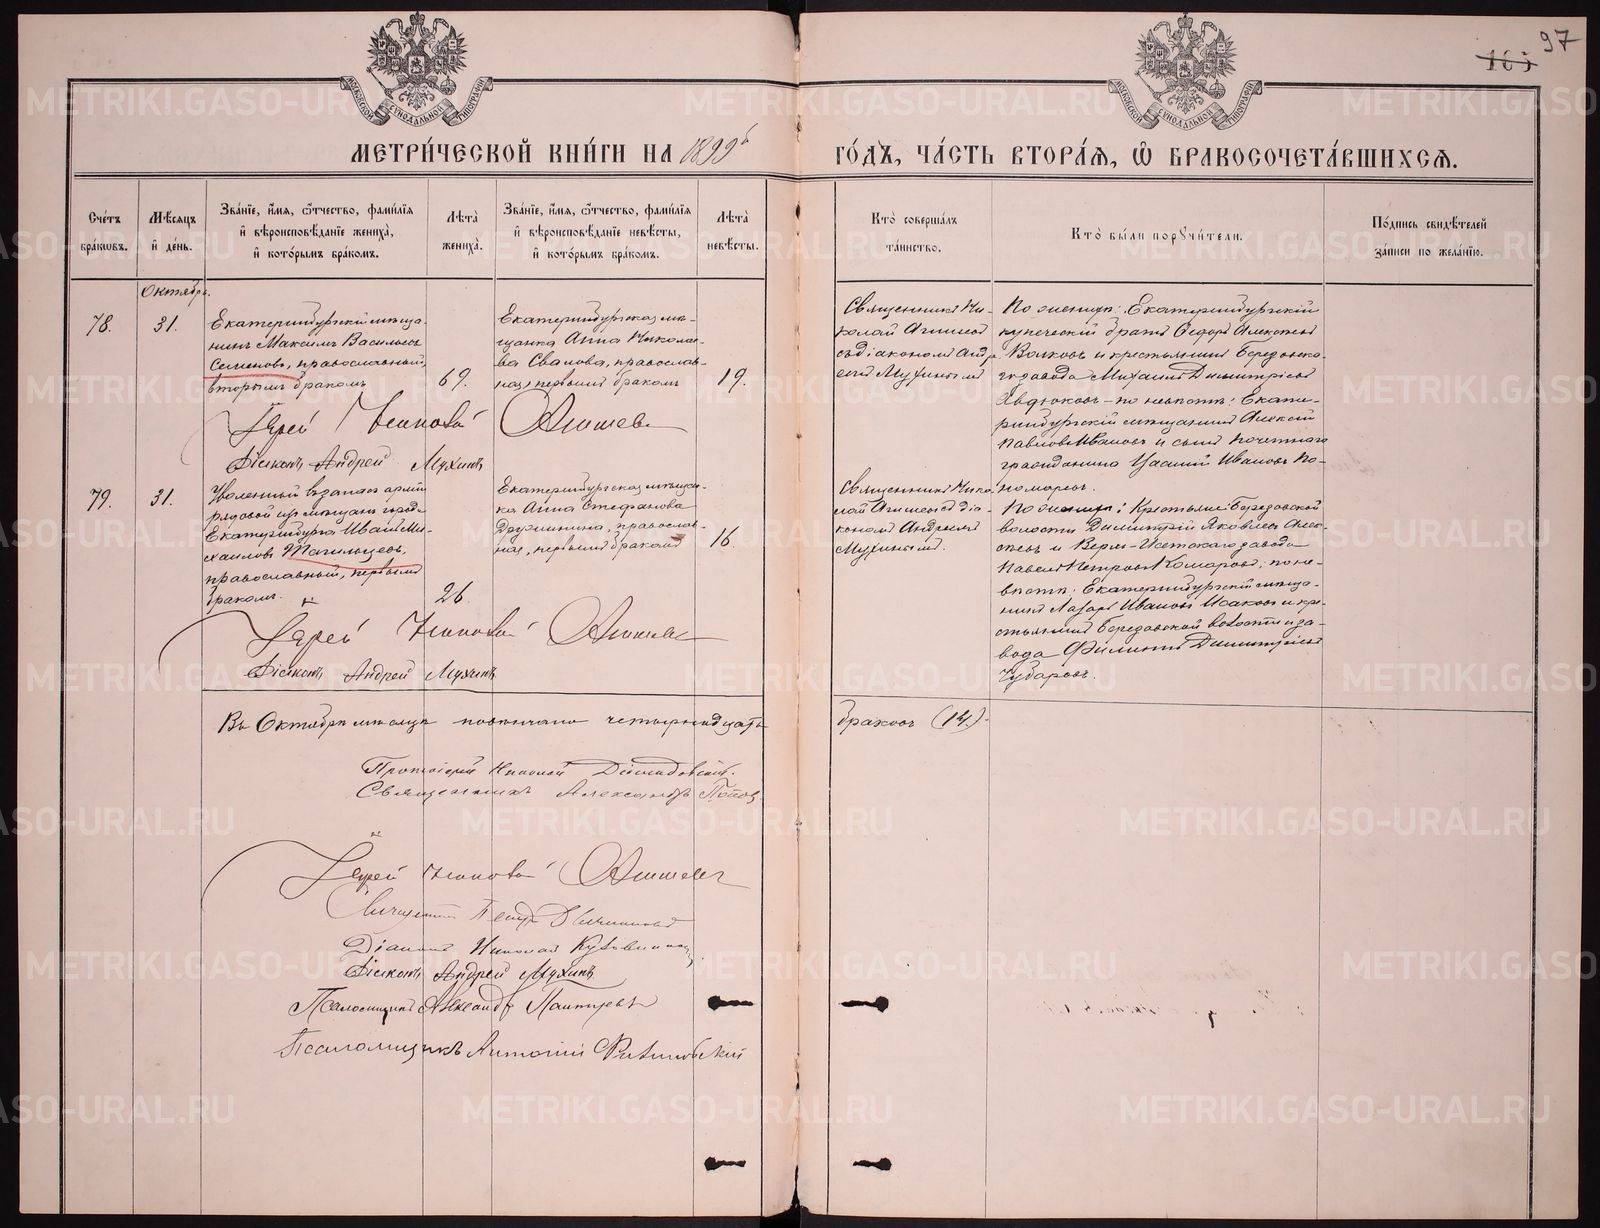 97
165
МЕТРИ́ЧЕСКОЙ КНИ́ГИ НА 1899й
ГО́ДЪ, ЧА́СТЬ ВТОРА́Я, Ѡ҆ БРАКОСОЧЕТА́ВШИХСЯ.
Сче́тъ бра́кѡвъ.
Мѣ́сяцъ и҆ де́нь.
Зва́нїе, и҆́мя, ѻ҆́тчество, фами́лїя
и҆ вѣроисповѣ́данїе жениха̀,
и҆ кото́рымъ бра́комъ.
Лѣта̀ жениха̀.
Зва́нїе, и҆́мя, ѻ҆́тчество, фами́лїя
и҆ вѣроисповѣ́данїе невѣ́сты,
и҆ кото́рымъ бра́комъ.
Лѣта̀ невѣ́сты.
Кто̀ соверша́лъ
та́инство.
Кто̀ бы́ли пору́чи́тели.
По́дпись свидѣ́телей
за́писи по жела́нїю.
Октябрь.
78.
31.
Екатеринбургскій мѣща-
нинъ Максимъ Васильевъ
Семеновъ, православный,
вторымъ бракомъ
69.
Екатеринбургская мѣ-
щанка Анна Николае-
ва Свалова, православ-
ная, первымъ бракомъ
19.
Священникъ Ни-
колай
съ діакономъ Андре-
емъ Мухинымъ
По женихѣ: Екатеринбургскій
купеческій братъ Ѳедоръ Алексѣевъ
Волковъ и крестьянинъ Березовска-
го завода Михаилъ Димитріевъ
Явдюковъ - по невѣстѣ: Екате-
ринбургскій мѣщанинъ Алексѣй
Павловъ Ивановъ и сынъ почетнаго
гражданина Иванов По-
номаревъ.
Іерей
Діаконъ Андрей Мухинъ
79.
31.
Уволенный въ запасъ арміи
рядовой изъ мѣщанъ города
Екатеринбурга Иванъ Ми-
хаиловъ Тагильцевъ,
православный, первымъ
бракомъ.
26.
Екатеринбургская мѣщан-
ка Анна Стефанова
Дружинина, православ-
ная, первымъ бракомъ
16.
Священникъ Нико-
лай съ діа-
кономъ Андреемъ
Мухинымъ.
По женихѣ: Крестьяне: Березовской
волости Димитрій Яковлевъ Алек-
сѣевъ и Верх-Исетскаго завода
Павелъ Петровъ Комаровъ, по не-
вѣстѣ: Екатеринбургскій мѣща-
нинъ Лазарь Ивановъ Исаковъ и кре-
стьянинъ Березовской волости и за-
вода Филиппъ Димитріевъ
Чубаровъ.
Іерей
Діаконъ Андрей Мухинъ
Въ Октябрѣ мѣсяцѣ повѣнчано четырнадцать
браковъ (14).
Протоіерей Николай
Священникъ Александръ Попов
Іерей
Священникъ Петръ
Діаконъ Николай
Діаконъ Андрей Мухинъ
Псаломщикъ Александръ
Псаломщикъ Антоній
METRIKI.GASO-URAL.RU